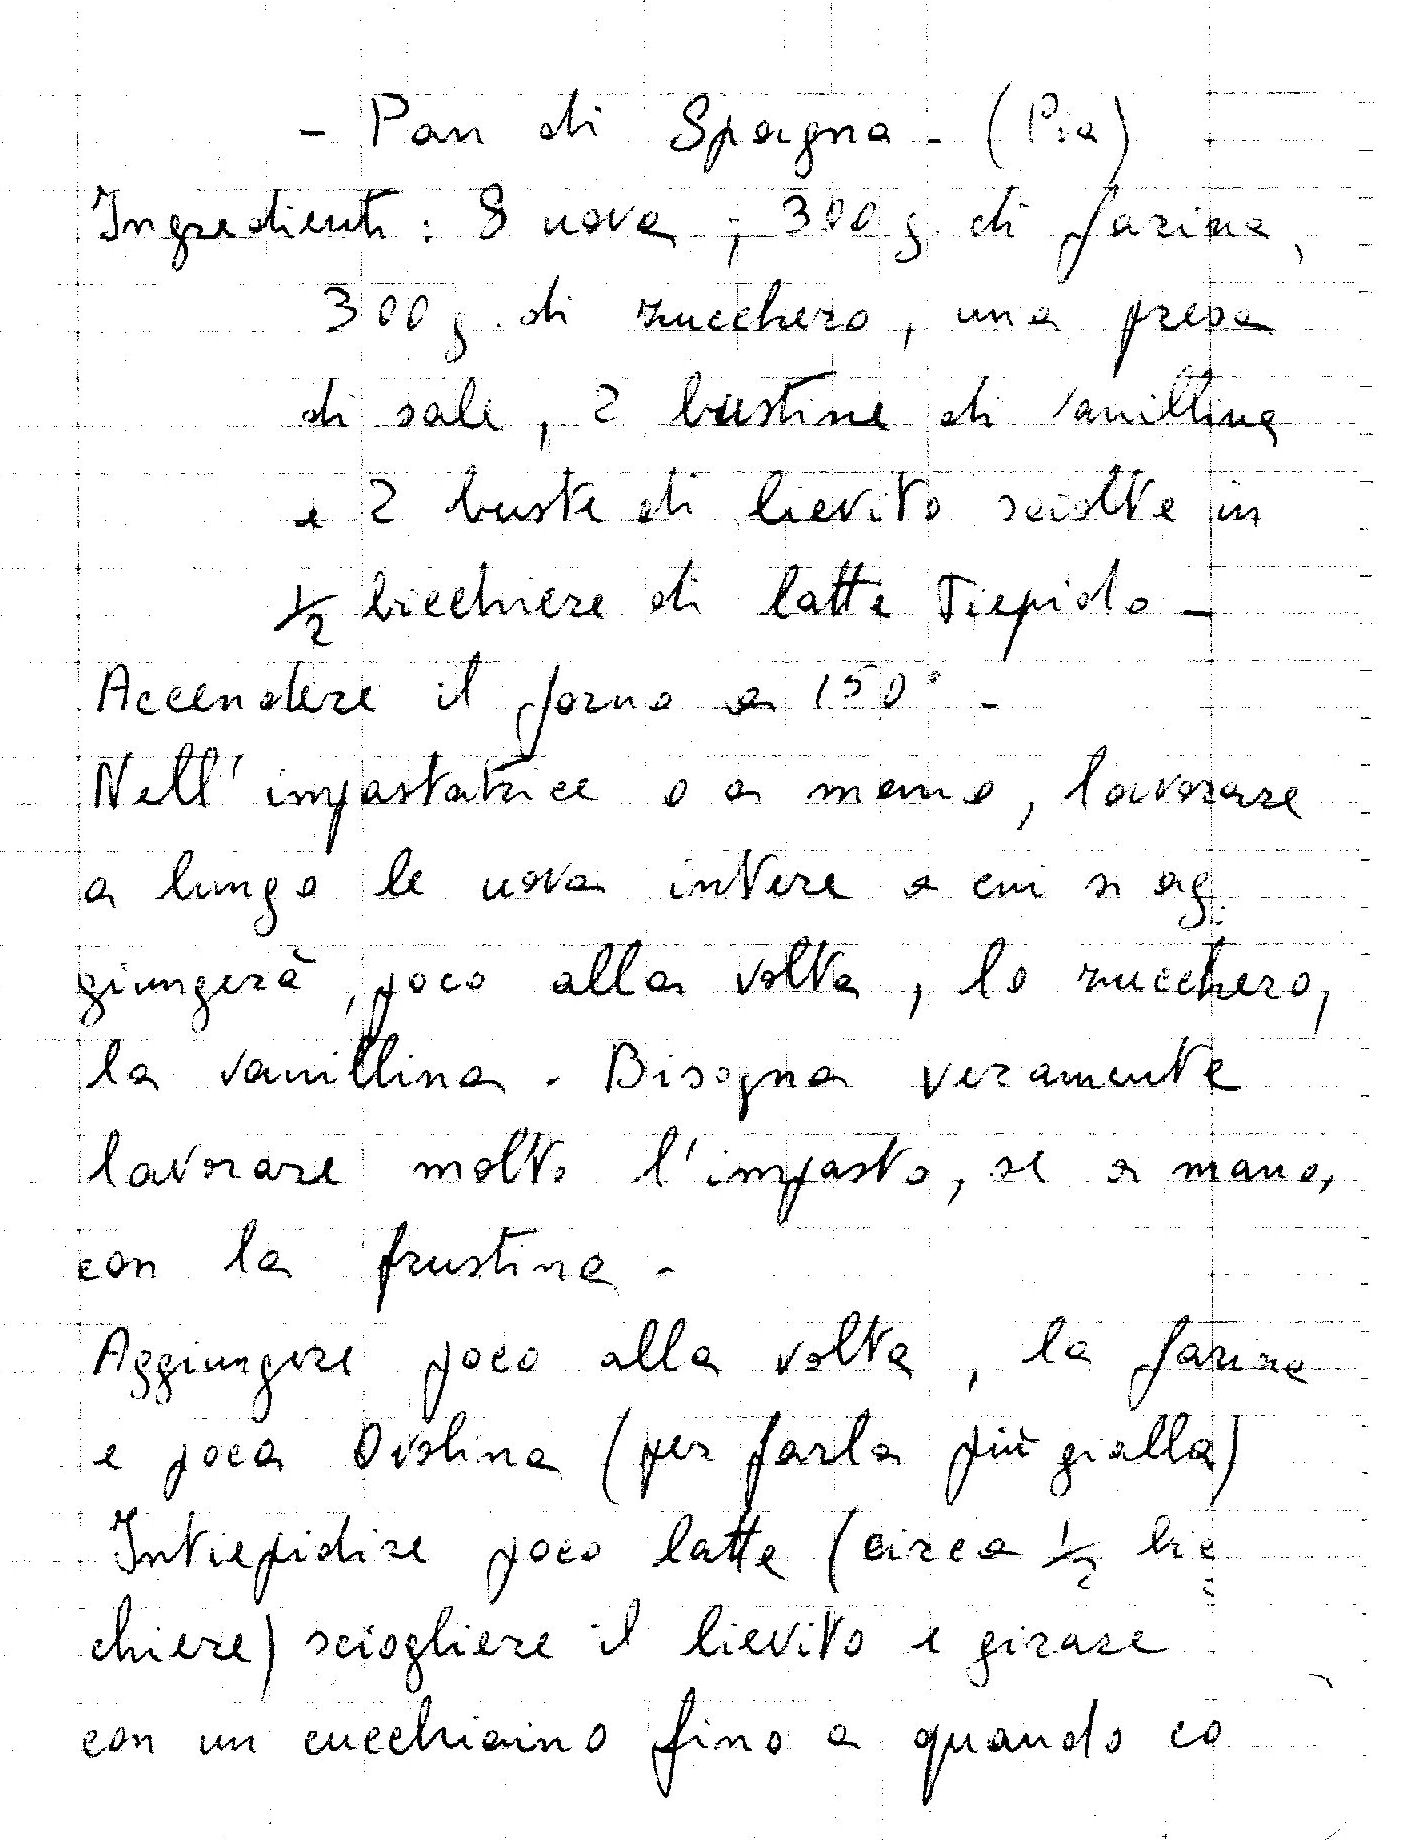 - Pan di Spagna - (Pia)
Ingredienti: 8 uova; 300 g di farina,
300 g. di zucchero, una presa
di sale, 2 bustine di vanillina
e 2 buste di lievito sciolte in
1/2 bicchiere di latte tiepido -
Accendere il forno a 150° -
Nell'impastatrice o a mano, lavorare
a lungo le uova intere a cui si ag-
giungerà, poco alla volta, lo zucchero,
la vanillina. Bisogna veramente
lavorare molto l'impasto, se a mano,
con la frustina -
Aggiungere poco alla volta, la farina
e poca Ovolina (per farla più gialla)
Intiepidire poco latte (circa 1/2 bic=
chiere) sciogliere il lievito e girare
con un cucchiaino fino a quando co